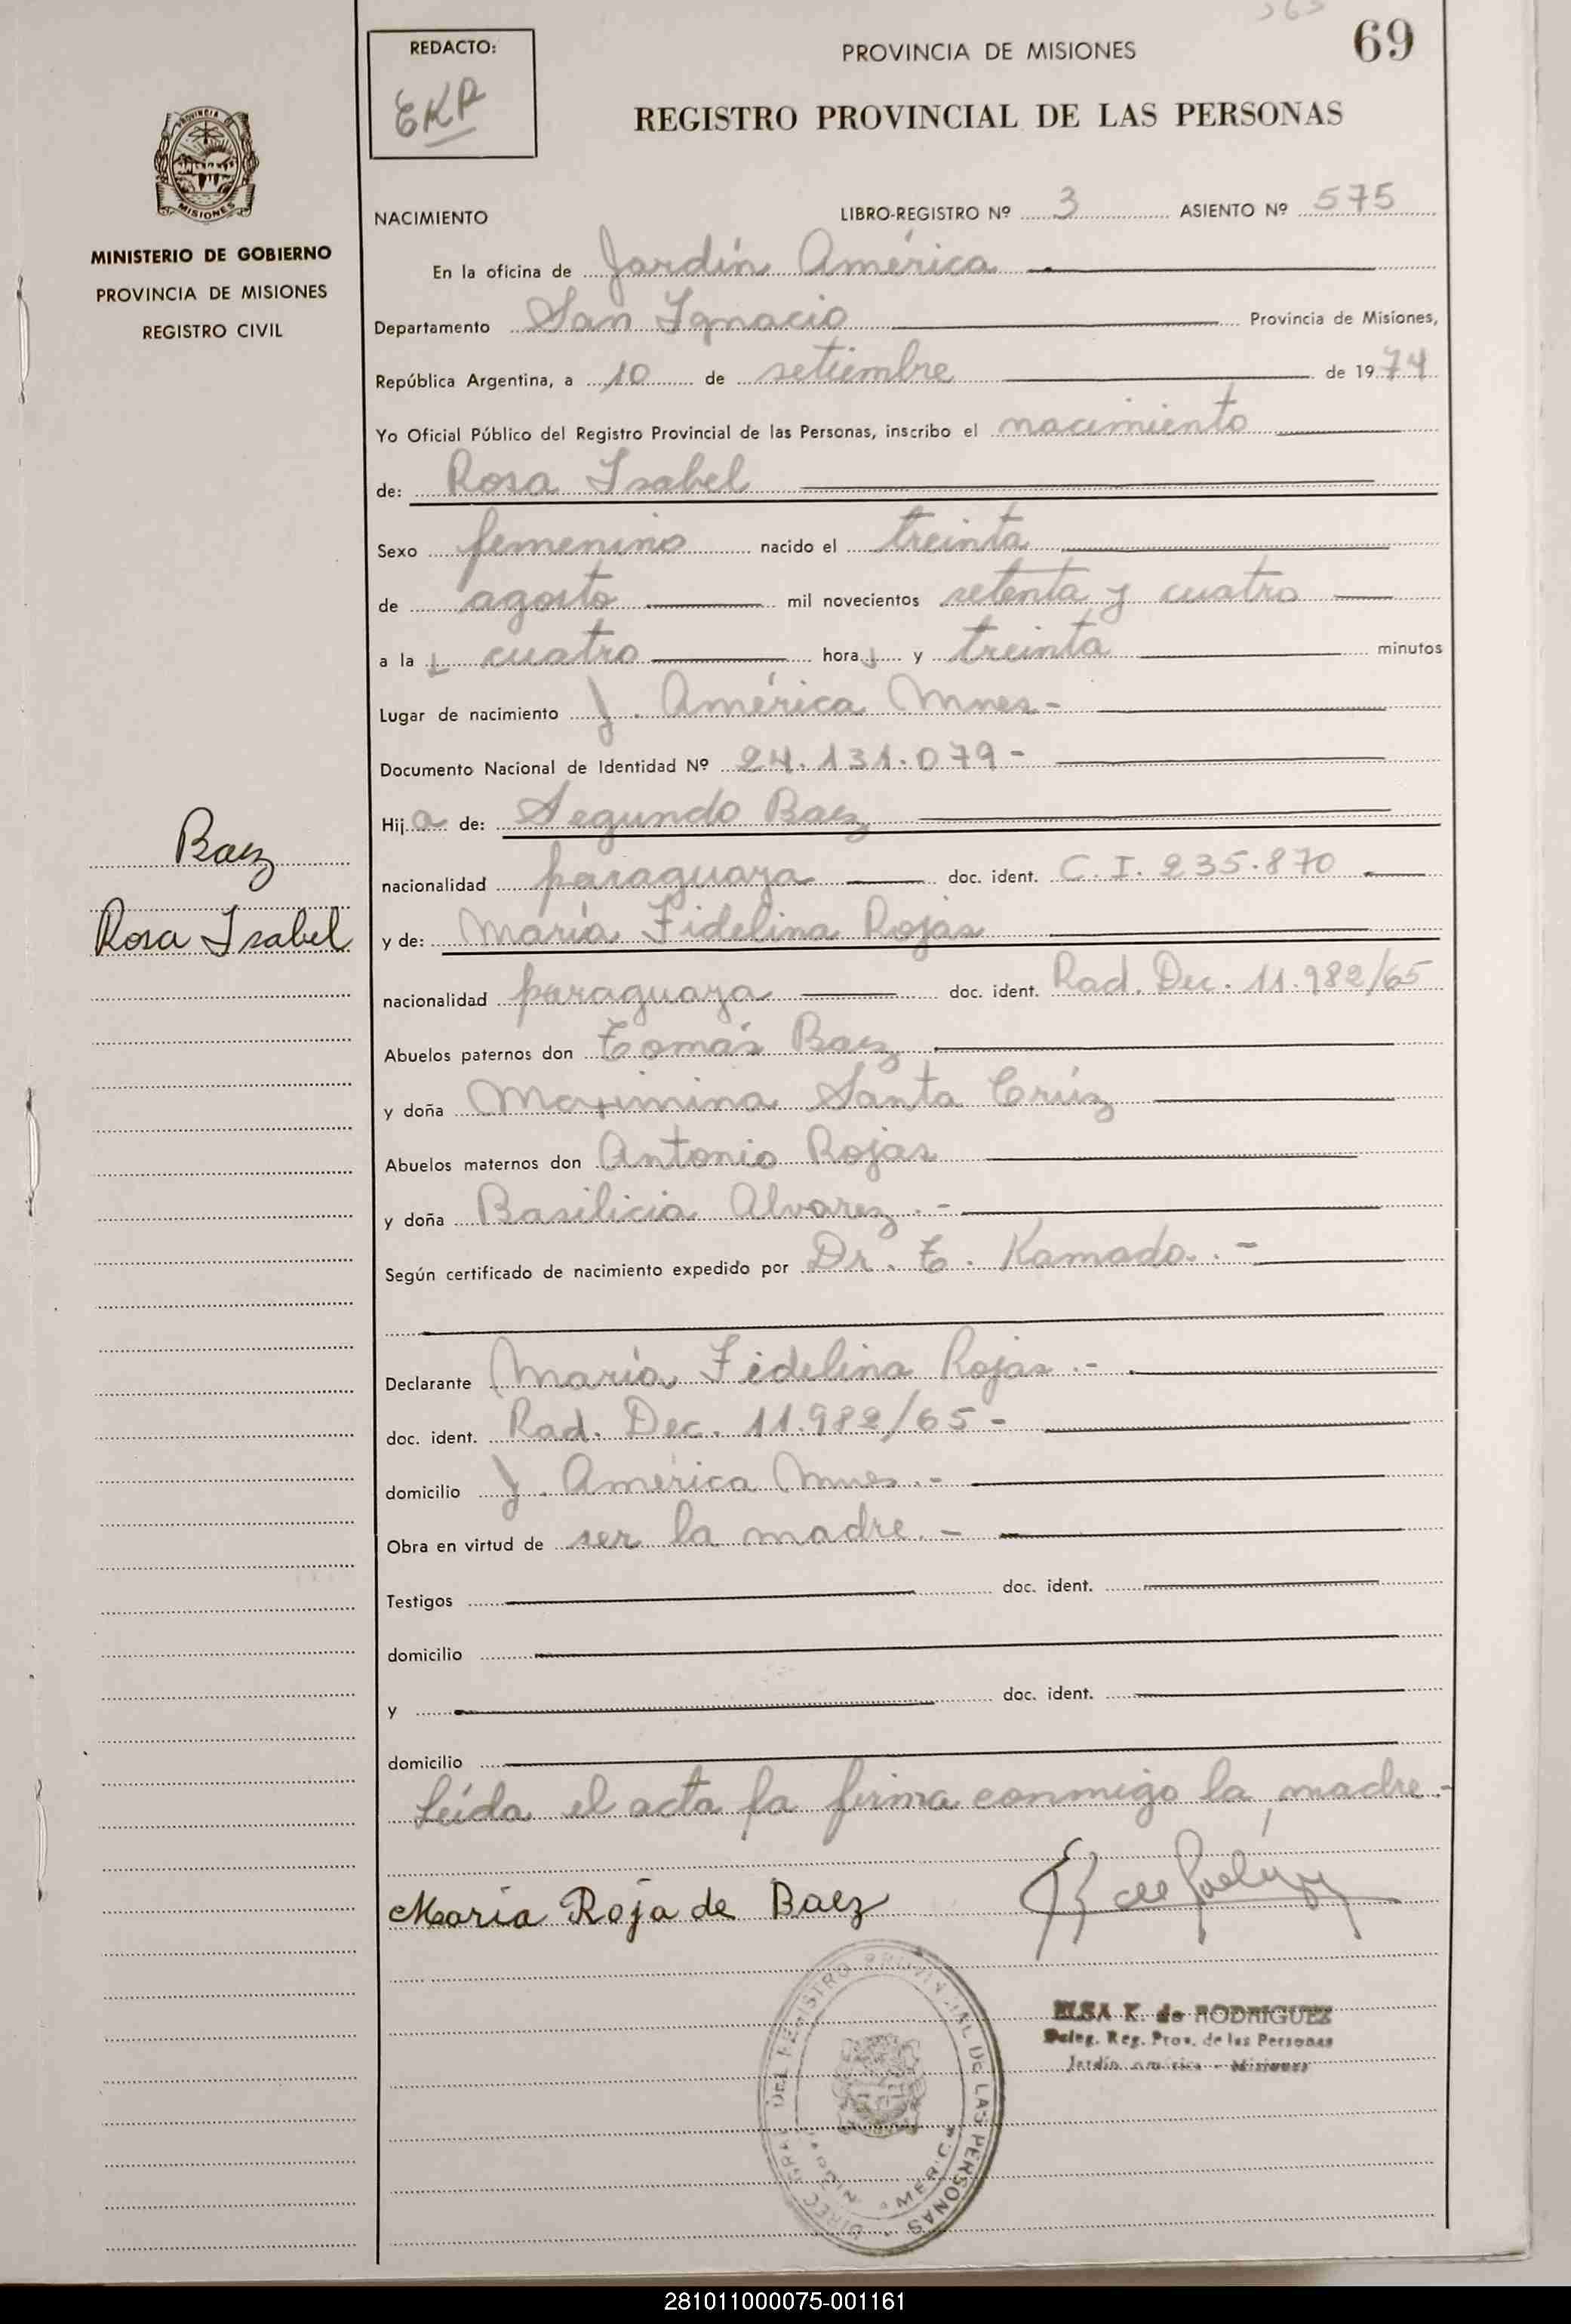 69
REDACTO:
EKR
PROVINCIA DE MISIONES
REGISTRO PROVINCIAL DE LAS PERSONAS
MISIONES
MINISTERIO DE GOBIERNO
PROVINCIA DE MISIONES
REGISTRO CIVIL
NACIMIENTO LIBRO-REGISTRO Nº 3 ASIENTO Nº 575
En la oficina de Jardín América
Departamento San Ignacio Provincia de Misiones,
República Argentina, a 10 de setiembre de 1974
Yo Oficial Público del Registro Provincial de las Personas, inscribo el nacimiento
de: Rosa Isabel
Sexo femenino nacido el treinta
de agosto mil novecientos setenta y cuatro
a la s cuatro hora s y treinta minutos
Lugar de nacimiento J. América Mnes.-
Documento Nacional de Identidad Nº 24.131.079-
Hij a de: Segundo Baez
nacionalidad paraguaya doc. ident. C.I. 235.870
y de: María Fidelina Rojas
nacionalidad paraguaya doc. ident. Rad. Dec. 11.982/65
Abuelos paternos don Tomás Baez
y doña Maximina Santa Crúz
Abuelos maternos don Antonio Rojas
y doña Basilicia Alvarez.-
Según certificado de nacimiento expedido por Dr. T. Kamada.-
Declarante María Fidelina Rojas.-
doc. ident. Rad. Dec. 11.982/65-
domicilio J. América Mnes.-
Obra en virtud de ser la madre.-
Testigos doc. ident.
domicilio
y doc. ident.
domicilio
Leída el acta la firma conmigo la madre.-
María Roja de Baez
Baez
Rosa Isabel
ELSA K. de RODRIGUEZ
Deleg. Reg. Prov. de las Personas
Jardín América - Misiones
DEL REGISTRO PROVINCIAL DE LAS PERSONAS
281011000075-001161